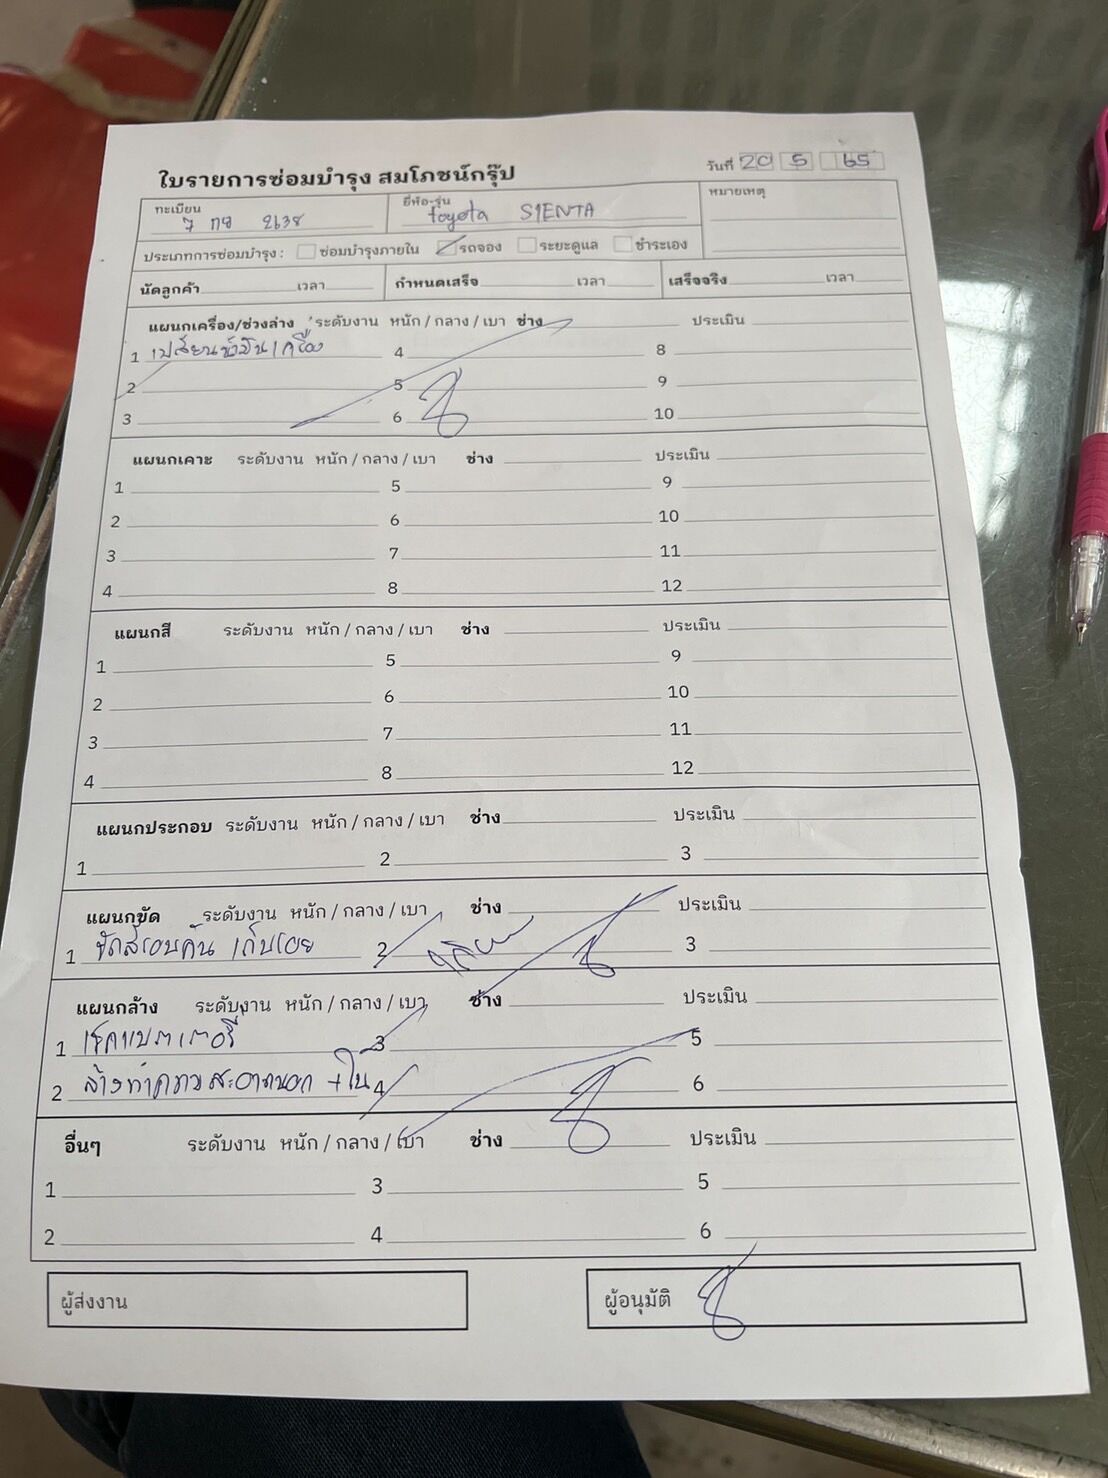 ใบรายการซ่อมบำรุง สมโภชน์กรุ๊ป
วันที่ 20 5 65
ทะเบียน 7 กข 2638 ยี่ห้อ-รุ่น toyota SIENTA หมายเหตุ
ประเภทการซ่อมบำรุง : ซ่อมบำรุงภายใน รถจอง ระยะดูแล ชำระเอง
นัดลูกค้า เวลา กำหนดเสร็จ เวลา เสร็จจริง เวลา
แผนกเครื่อง/ช่วงล่าง ระดับงาน หนัก / กลาง / เบา ช่าง ประเมิน
1 เปลี่ยนน้ำมันเครื่อง 4 8
2 5 9
3 6 10
แผนกเคาะ ระดับงาน หนัก / กลาง / เบา ช่าง ประเมิน
1 5 9
2 6 10
3 7 11
4 8 12
แผนกสี ระดับงาน หนัก / กลาง / เบา ช่าง ประเมิน
1 5 9
2 6 10
3 7 11
4 8 12
แผนกประกอบ ระดับงาน หนัก / กลาง / เบา ช่าง ประเมิน
1 2 3
แผนกขัด ระดับงาน หนัก / กลาง / เบา ช่าง ประเมิน
1 ขัดสีรอบคัน เก็บรอย 2 3
แผนกล้าง ระดับงาน หนัก / กลาง / เบา ช่าง ประเมิน
1 เช็คแบตเตอรี่ 3 5
2 ล้างทำความสะอาดนอก + ใน 4 6
อื่นๆ ระดับงาน หนัก / กลาง / เบา ช่าง ประเมิน
1 3 5
2 4 6
ผู้ส่งงาน ผู้อนุมัติ